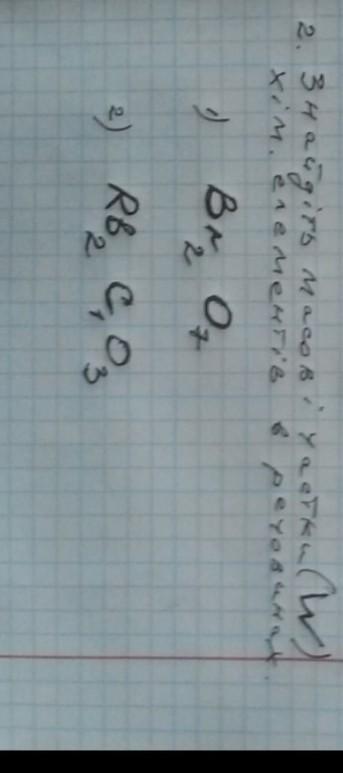 2. Знайдіть масові частки (W)
хім. елементів в речовинах.
1) Br₂O₇
2) Rb₂C₁O₃